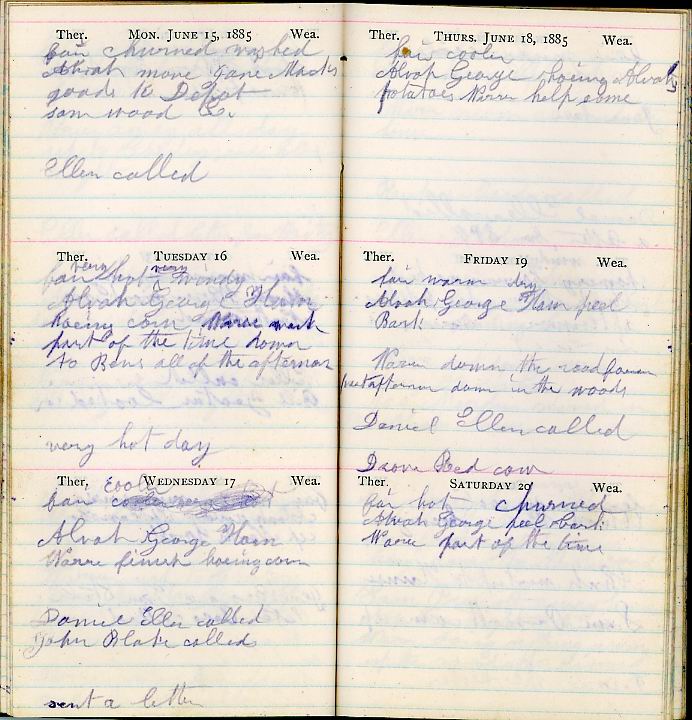 Ther. MON. JUNE 15, 1885 Wea.
fair churned washed
Alvah move Jane Mack's
goods to Depot
som wood &c.
Ellen called
Ther. TUESDAY 16 Wea.
fair very hot very windy
Alvah George Ham
hoeing corn Warre work
part of the time down
to Bens all of the afternon
very hot day
Ther. WEDNESDAY 17 Wea.
fair cooler
Alvah George Ham
Warre finish hoeing corn
Daniel Ellen called
John Blake called
sent a letter
Ther. THURS. JUNE 18, 1885 Wea.
fair cooler
Alvah George hoeing Alvah's
potatoes Warre help some
Ther. FRIDAY 19 Wea.
fair warm dry
Alvah George Ham peel
Bark
Warre down the road
afternon down in the woods
Daniel Ellen called
Drove Red cow
Ther. SATURDAY 20 Wea.
fair hot churned
Alvah George peel bark
Warre part of the time